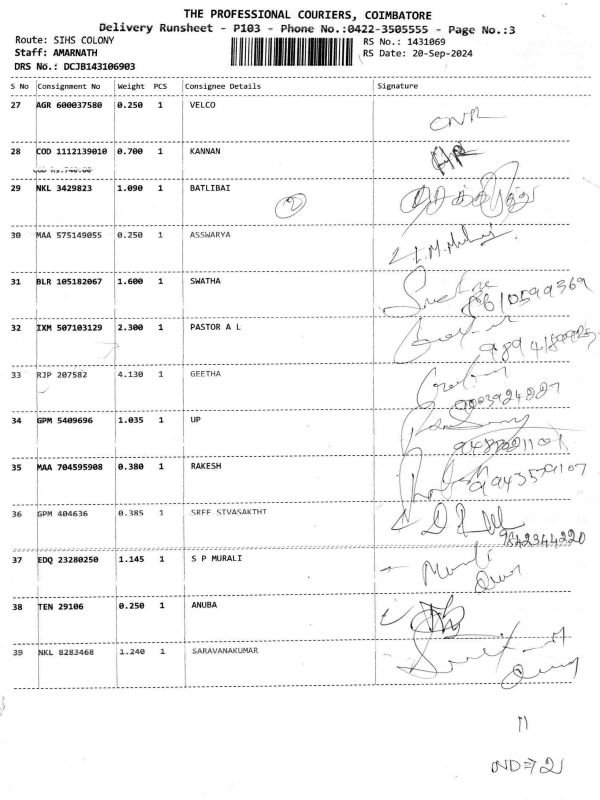 THE PROFESSIONAL COURIERS, COIMBATORE
Delivery Runsheet - P103 - Phone No.:0422-3505555 - Page No.:3
Route: SIHS COLONY
Staff: AMARNATH
DRS No.: DCJB143106903
RS No.: 1431069
RS Date: 20-Sep-2024
S No Consignment No Weight PCS Consignee Details Signature
27 AGR 600037580 0.250 1 VELCO CNR
28 COD 1112139010 0.700 1 KANNAN
COD Rs.740.00
29 NKL 3429823 1.090 1 BATLIBAI
30 MAA 575149055 0.250 1 ASSWARYA
31 BLR 105182067 1.600 1 SWATHA
32 IXM 507103129 2.300 1 PASTOR A L
33 RJP 207582 4.130 1 GEETHA
34 GPM 5409696 1.035 1 UP
35 MAA 704595908 0.380 1 RAKESH
9943579107
36 GPM 404636 0.385 1 SREE SIVASAKTHI
9842344220
37 EDQ 23280250 1.145 1 S P MURALI
38 TEN 29106 0.250 1 ANUBA
39 NKL 8283468 1.240 1 SARAVANAKUMAR
11
ND⇒2